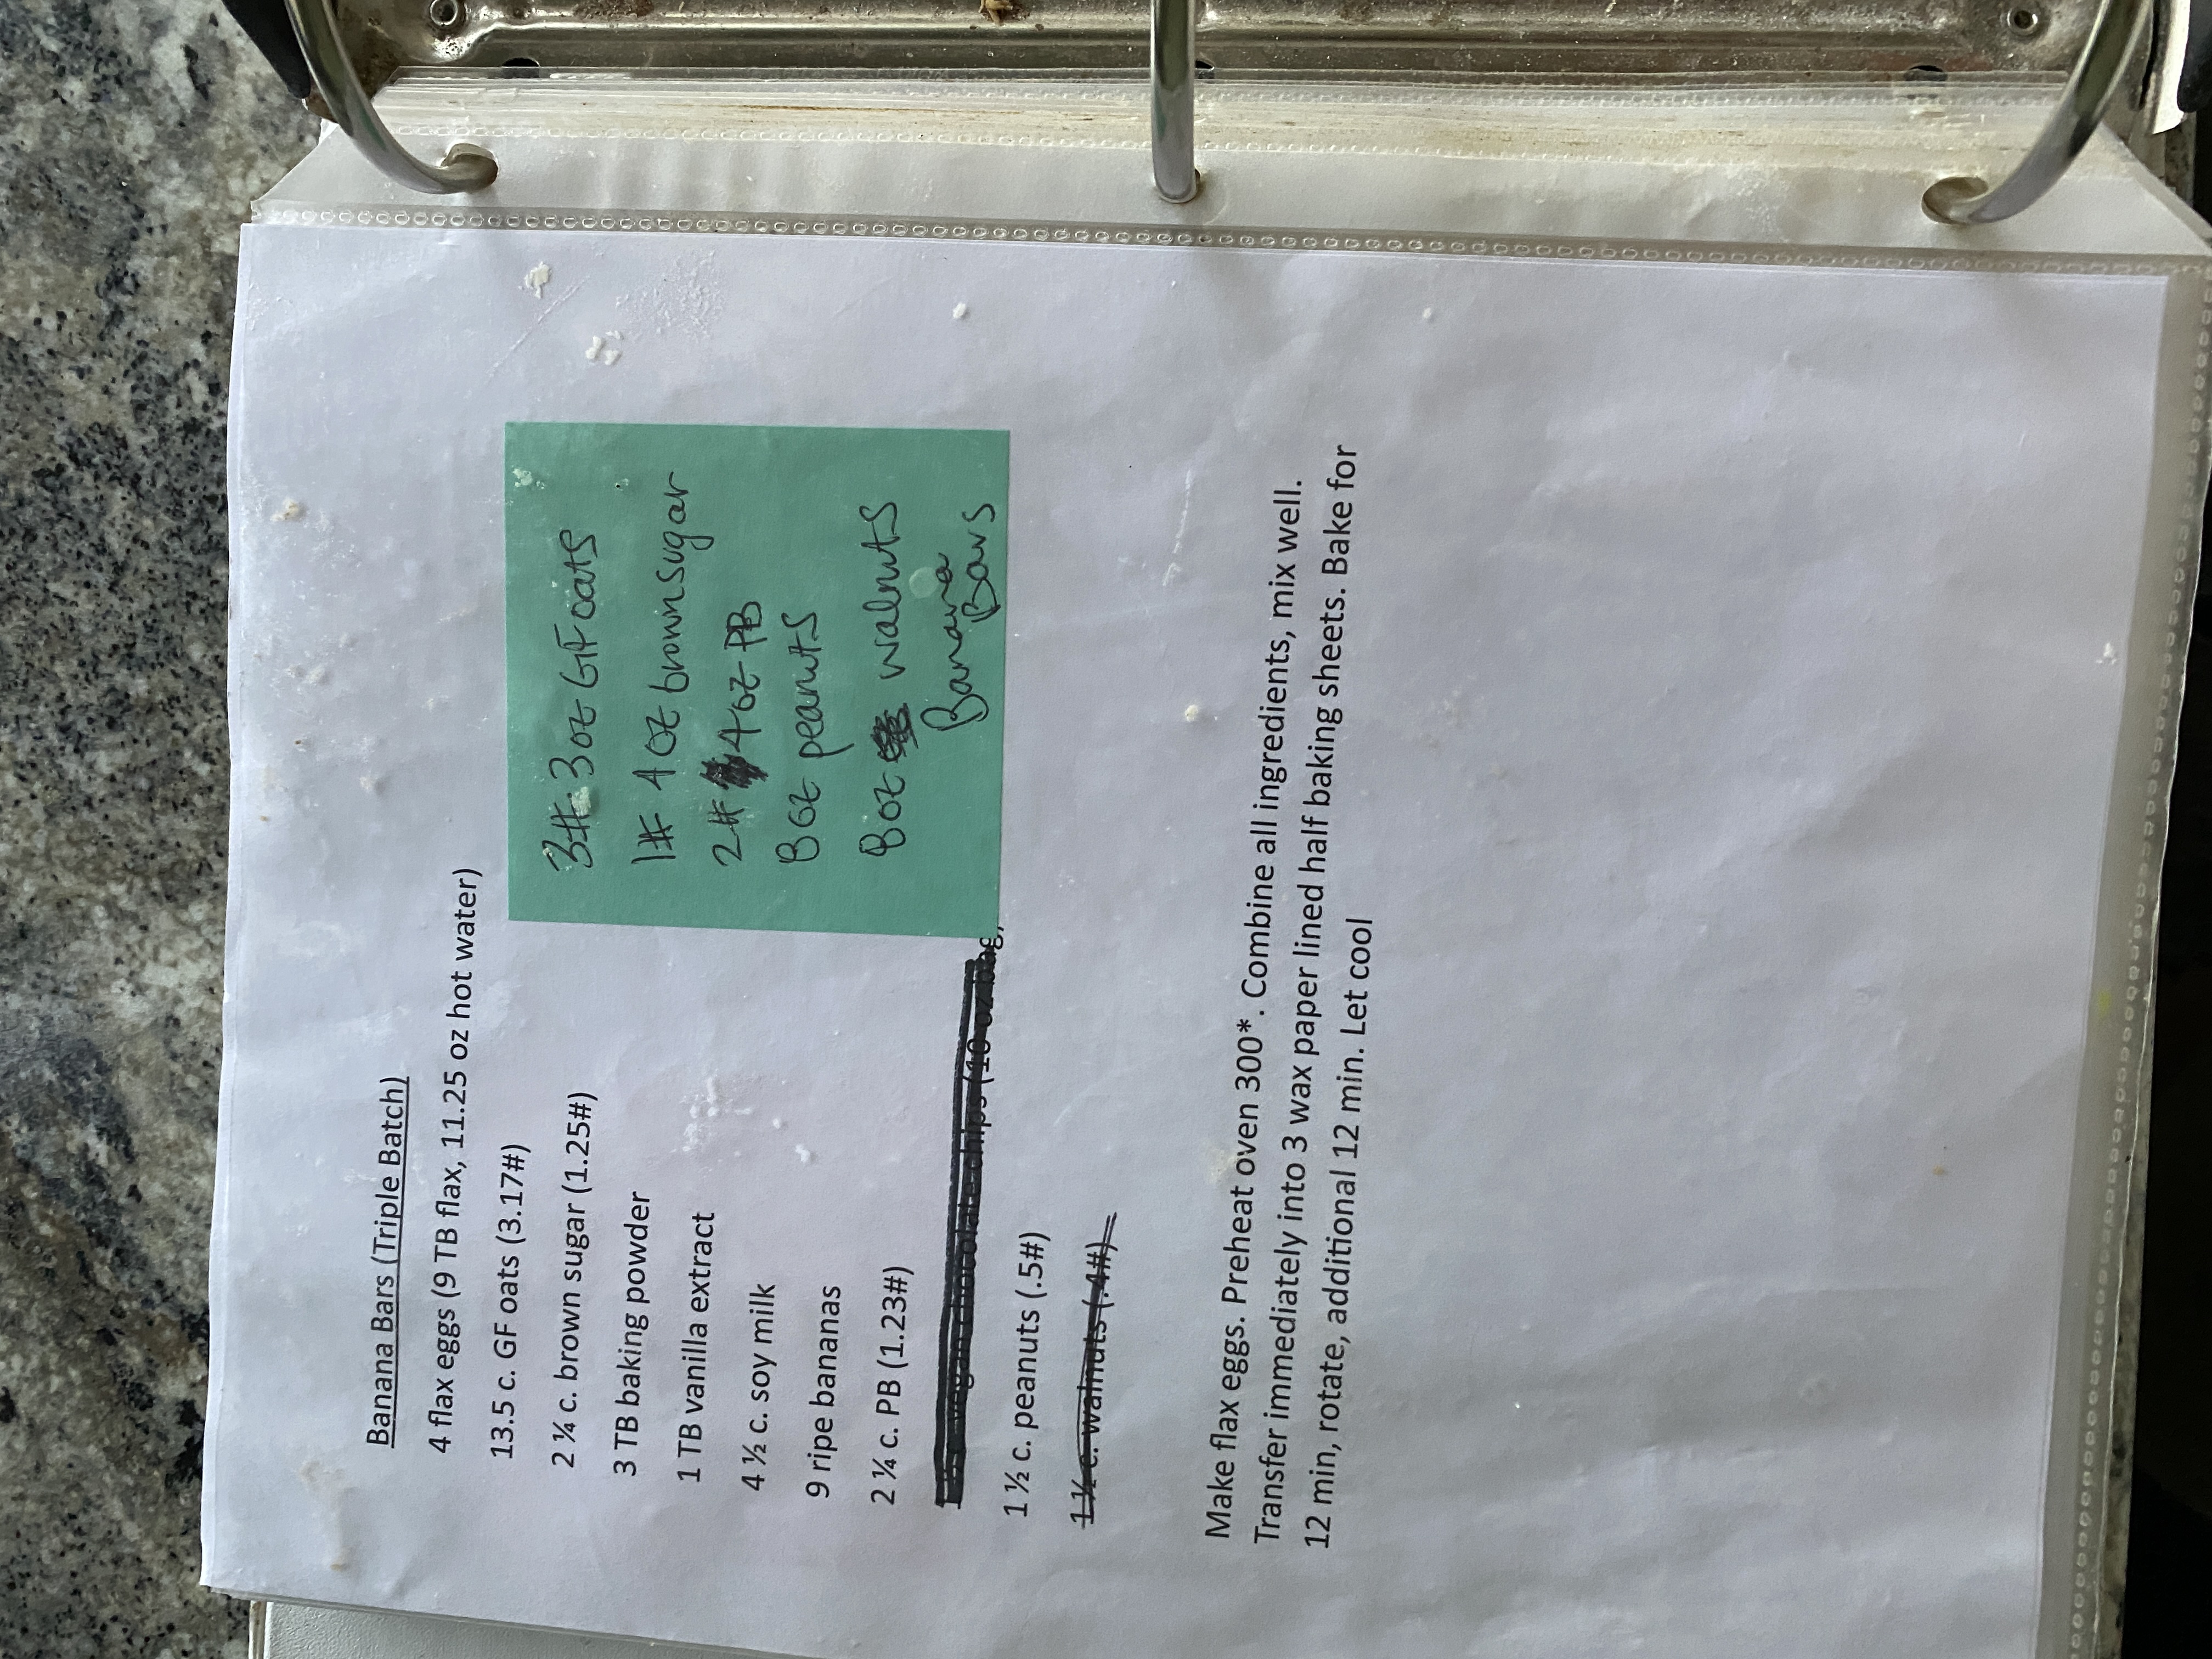 Banana Bars (Triple Batch)
4 flax eggs (9 TB flax, 11.25 oz hot water)
13.5 c. GF oats (3.17#)
2 ¼ c. brown sugar (1.25#)
3 TB baking powder
1 TB vanilla extract
4 ½ c. soy milk
9 ripe bananas
2 ¼ c. PB (1.23#)
vegan chocolate chips (10 oz bag,
1 ½ c. peanuts (.5#)
1 ½ c. walnuts (.4#)
3#. 3oz GF oats
1# 4oz brown sugar
2# 4oz PB
8oz peanuts
8oz walnuts
Banana
Bars
Make flax eggs. Preheat oven 300*. Combine all ingredients, mix well.
Transfer immediately into 3 wax paper lined half baking sheets. Bake for
12 min, rotate, additional 12 min. Let cool